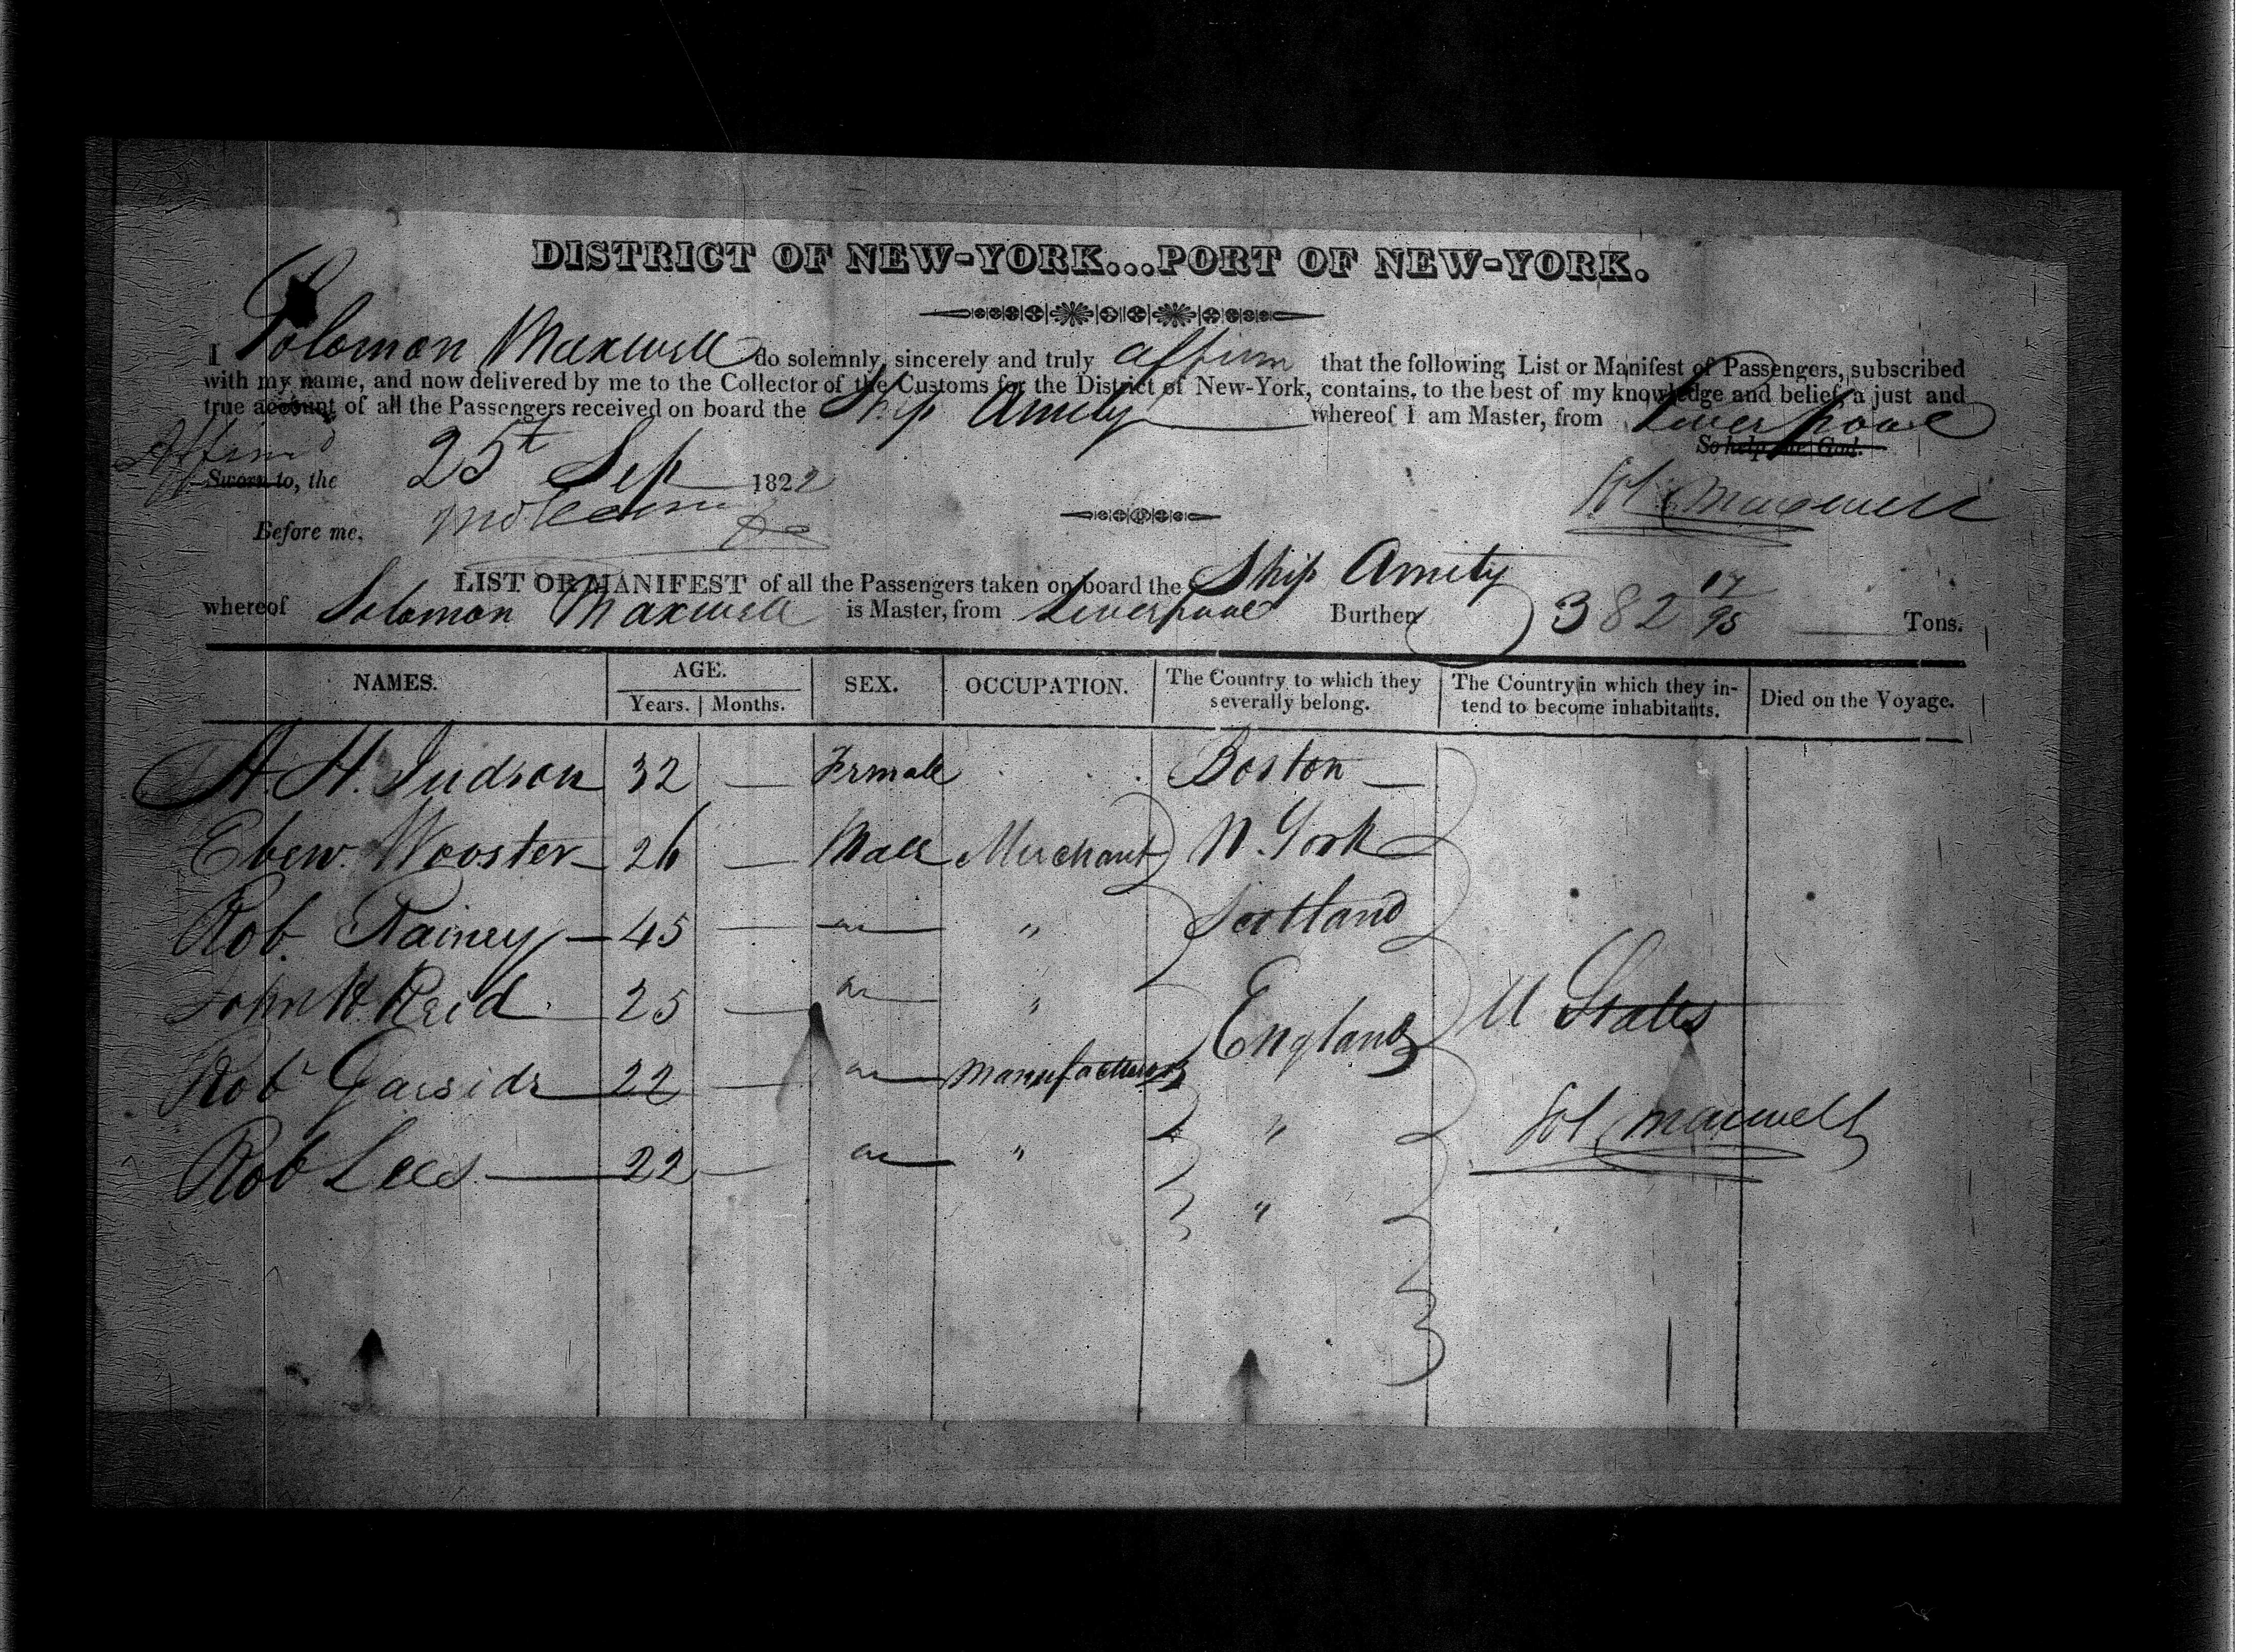 DISTRICT OF NEW-YORK...PORT OF NEW-YORK.
I Solomon Maxwell do solemnly, sincerely and truly affirm that the following List or Manifest of Passengers, subscribed
with my name, and now delivered by me to the Collector of the Customs for the District of New-York, contains, to the best of my knowledge and belief, a just and
true account of all the Passengers received on board the Ship Amity whereof I am Master, from Liverpool
So help me God.
Affirmd
Sworn to, the 25t Sep 1822
Sol Maxwell
Before me,
LIST OR MANIFEST of all the Passengers taken on board the Ship Amity
whereof Solomon Maxwell is Master, from Liverpool Burthen 382 17/95 Tons.
NAMES. AGE. Years. Months. SEX. OCCUPATION. The Country to which they severally belong. The Country in which they intend to become inhabitants. Died on the Voyage.
A. H. Judson 32 — Female Boston —
Eben. Wooster 26 — Male Merchant N. York
Rob. Rainey 45 — " Scotland
John H Reid 25 — " England U States
Rob Garside 22 — Manufacturer "
Rob Lees 22 — " "
Sol Maxwell